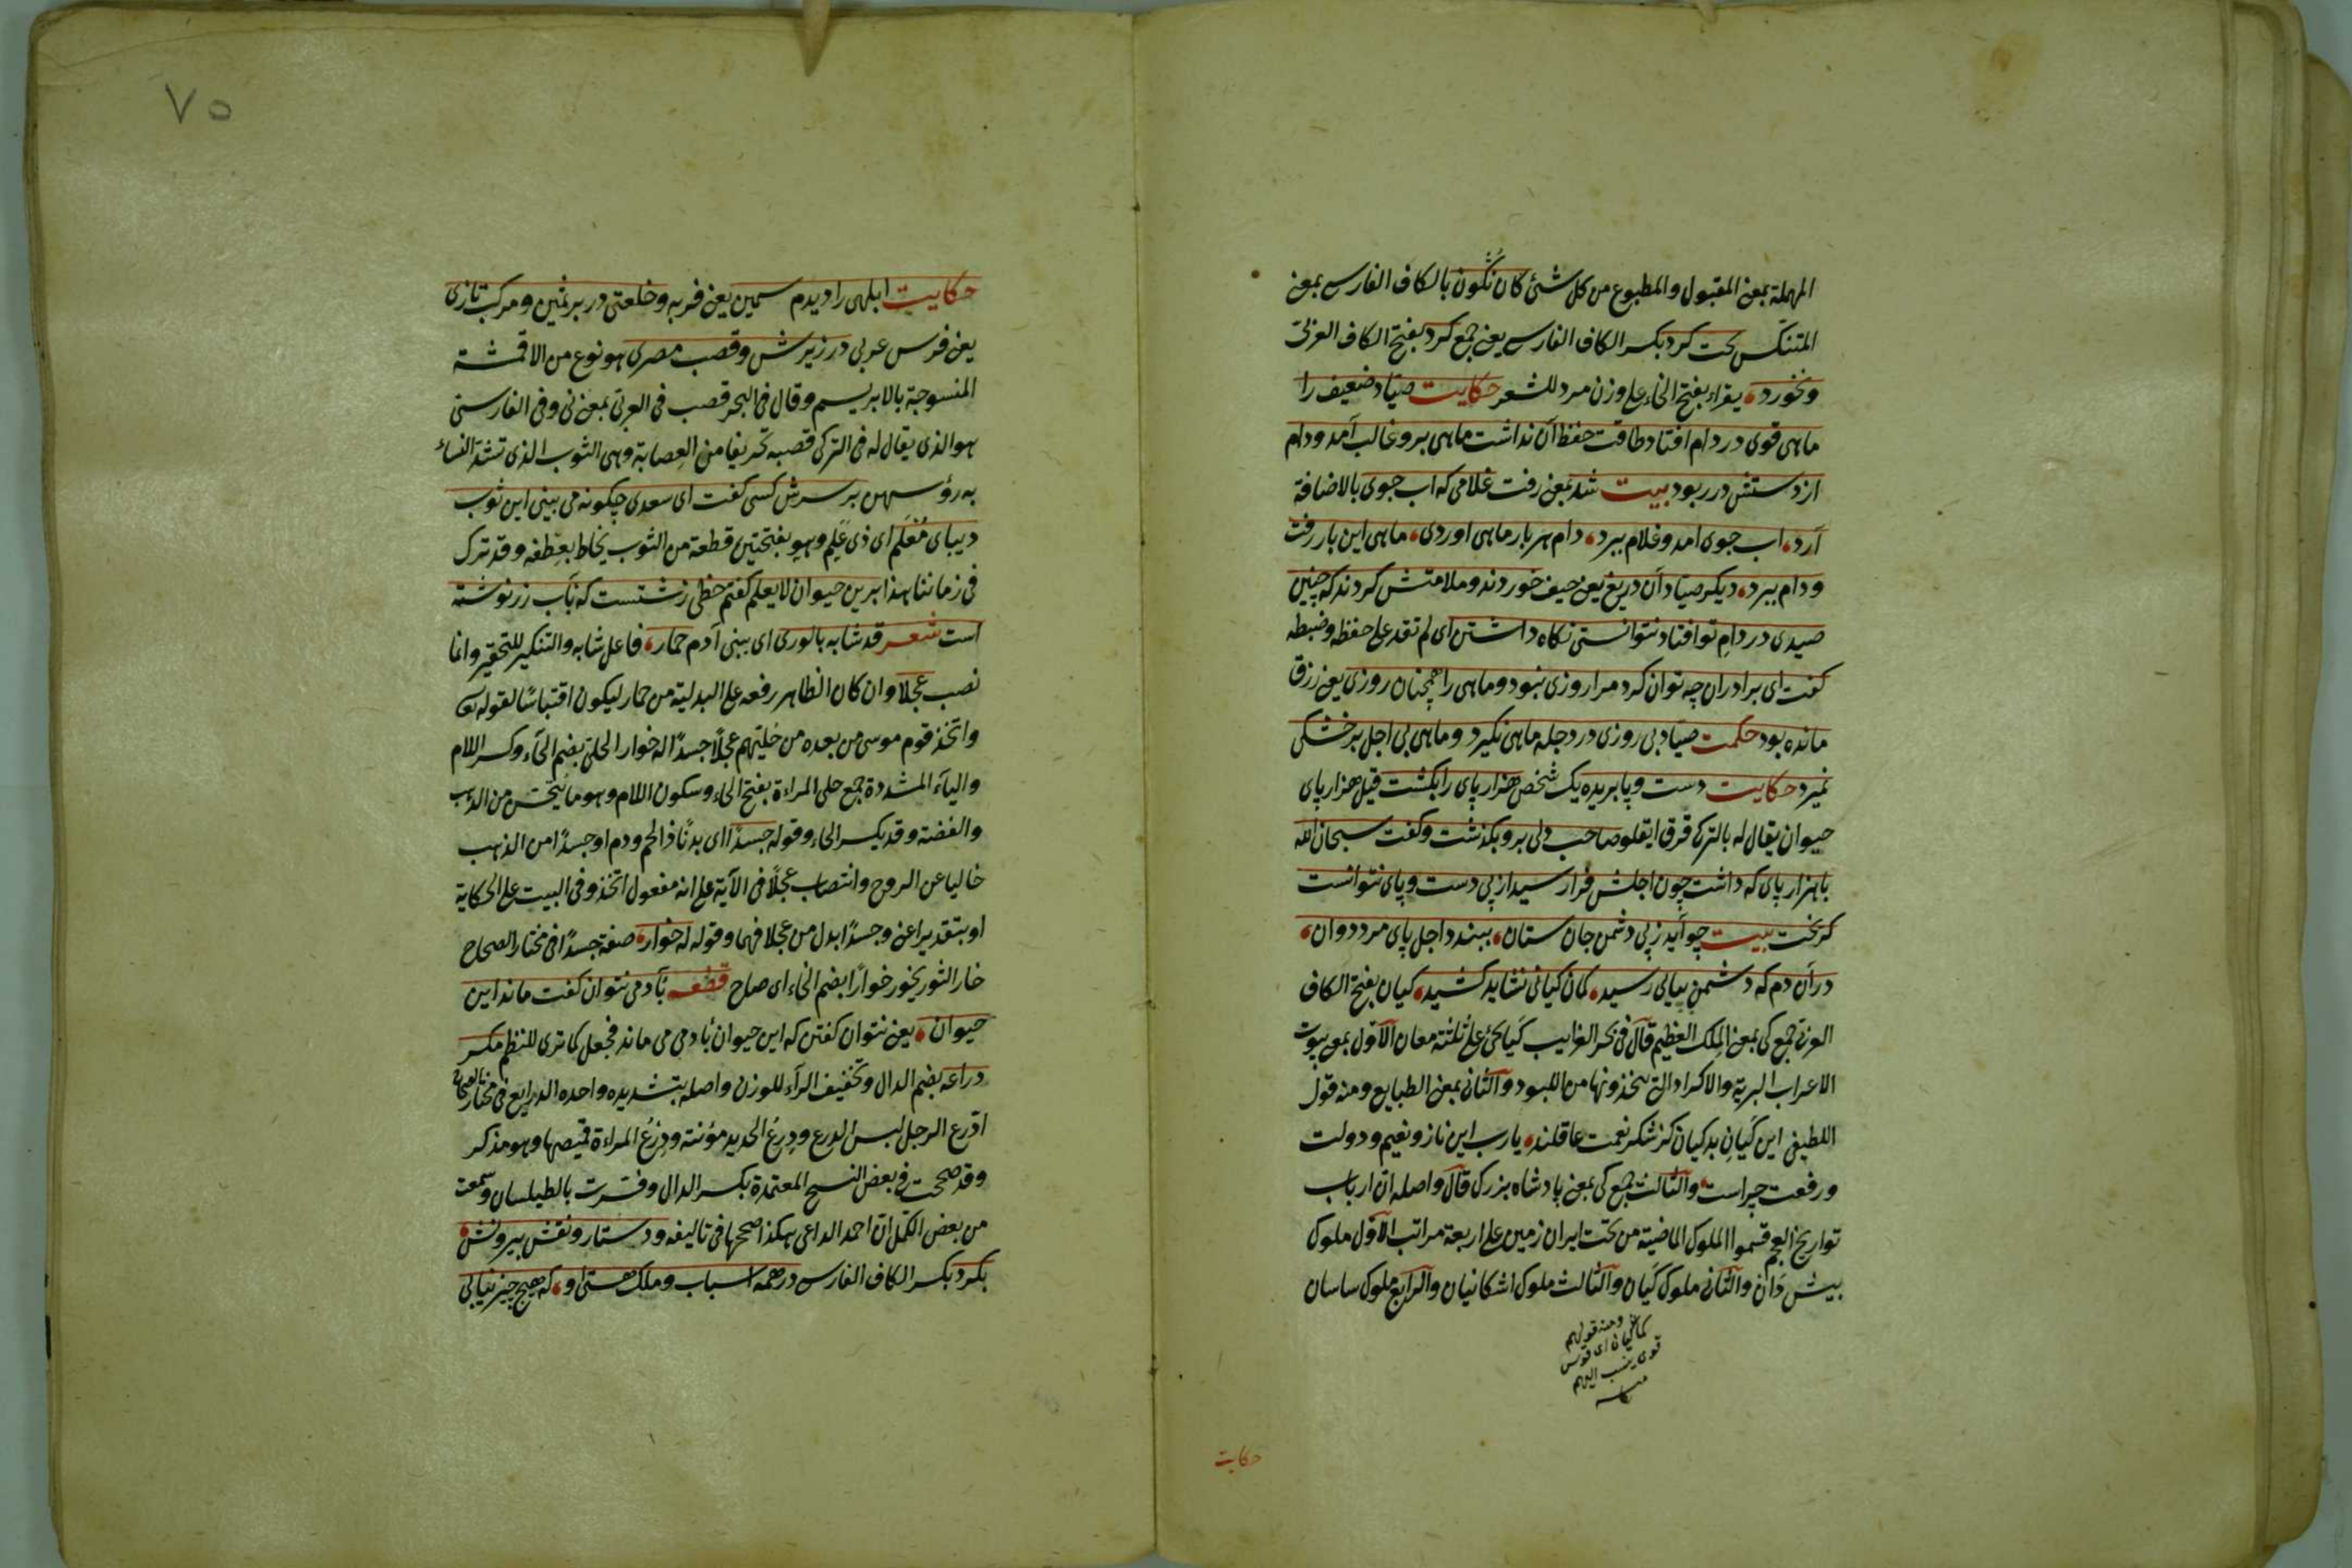 المهملة بمعنى المقبول والمطبوع من كل شئ كان نكون بالكاف الفارسى بمعنى
المتنكس بخت كرد بكسر الكاف الفارسى يعنى جمع كرد بفتح الكاف العربى
ونخورد يقراء بفتح الخاء على وزن مرد للشعر حكايت صياد ضعيف را
ماهى قوى در دام افتاد طاقت حفظ آن نداشت ماهى برو غالب آمد ودام
از دستش در ربود بيت شد بمعنى رفت غلامى كه اب جوى بالاضافة
آرد اب جوى امد وغلام ببرد دام هر بار ماهى اوردى ماهى اين بار رفت
ودام ببرد ديكر صيادان دريغ يعنى حيف خوردند وملامتش كردند كه چنين
صيدى در دام تو افتاد نتوانستى نكاه داشتن اى لم تقدر على حفظه وضبطه
كفت اى برادران چه توان كرد مرا روزى نبود وماهى را همچنان روزى يعنى رزق
مانده بود حكمت صياد بى روزى در دجله ماهى نكيرد وماهى بى اجل بر خشكى
نميرد حكايت دست وپا بريده يك شخص هزار پاى را بكشت قيل هزار پاى
حيوان يقال له بالتركى قرق ايقلو صاحب دلى برو بكذشت وكفت سبحان الله
با هزار پاى كه داشت چون اجلش فرا رسيد از بى دست وپاى نتوانست
كريخت بيت چو آيد ز پى دشمن جان ستان ببندد اجل پاى مرد دوان
در آن دم كه دشمن پياپى رسيد كمان كيانى نشايد كشيد كيان بفتح الكاف
العربى جمع كى بمعنى الملك العظيم قال فى بحر الغرايب كيان يجئ على ثلثة معان الاول بمعنى بيوت
الاعراب البرية والاكراد التى يتخذونها من اللبود والثانى بمعنى الطبايع ومنه قول
اللطيفى اين كيان بد كيان كز شكر نعمت عاقلند يارب اين ناز ونعيم ودولت
ورفعت چراست والثالث جمع كى بمعنى پادشاه بزرك قال واصله ان ارباب
تواريخ العجم قسموا الملوك الماضية من تحت ايران زمين على اربعة مراتب الاول ملوك
پيش دان والثانى ملوك كيان والثالث ملوك اشكانيان والرابع ملوك ساسان
ومنه قولهم
كمان كيان اى قوس
قوى ينسب اليهم
حكايت
٧٥
حكايت ابلهى را ديدم سمين يعنى فربه وخلعتى در بر ثمين ومركب تازى
يعنى فرس عربى در زيرش وقصب مصرى هو نوع من الاقمشة
المنسوجة بالابريسم وقال فى البحر قصب فى العربى بمعنى نى وفى الفارسى
هو الذى يقال له فى التركى قصبه تحريفا من العصابة وهى الثوب الذى تشد النساء
به رؤسهن بر سرش كسى كفت اى سعدى چكونه مى بينى اين ثوب
ديباى معلم اى ذى علم وهو بفتحتين قطعة من الثوب يخاط بعطفه وقد ترك
فى زماننا هذا برين حيوان لا يعلم كفتم خطى زشتست كه بآب زر نوشته
است شعر قد شابه بالورى اى ببنى آدم حمار فاعل شابه والتنكير للتحقير وانما
نصب عجلا وان كان الظاهر رفعه على البدلية من حمار ليكون اقتباسا لقوله تعالى
واتخذ قوم موسى من بعده من حليهم عجلا جسدا له خوار الحلى بضم الحآء وكسر اللام
واليآء المشددة جمع حلى المراءة بفتح الحاء وسكون اللام وهو ما يتحسن من الذهب
والفضة وقد يكسر الحاء وقوله جسدا اى بدنا ذا لحم ودم او جسدا من الذهب
خاليا عن الروح وانتصاب عجلا فى الآية على انه مفعول اتخذ وفى البيت على الحكاية
او بتقدير اعنى وجسدا بدل من عجلا فهما وقوله له خوار صفة جسدا فى مختار الصحاح
خار الثور يخور خوارا بضم الخاء اى صاح قطعه بآدمى نتوان كفت ماند اين
حيوان يعنى نتوان كفتن كه اين حيوان بآدمى مى ماند فجعل كما ترى للنظم مكر
دراعه بضم الدال وتخفيف الرآء للوزن واصله بتشديده واحده الدراريع فى مختار الصحاح
ادرع الرجل لبس الدرع ودرع الحديد مؤنثة ودرع المراءة قميصها وهو مذكر
وقد صححت فى بعض النسخ المعتمدة بكسر الدال وفسرت بالطيلسان وسمعت
من بعض الكمل ان احمد الداعى هكذا صححها فى تاليفه ودستار ونقش بيرونش
بكرد بكسر الكاف الفارسى در همه اسباب وملك هستى او كه هيچ چيز نيابى